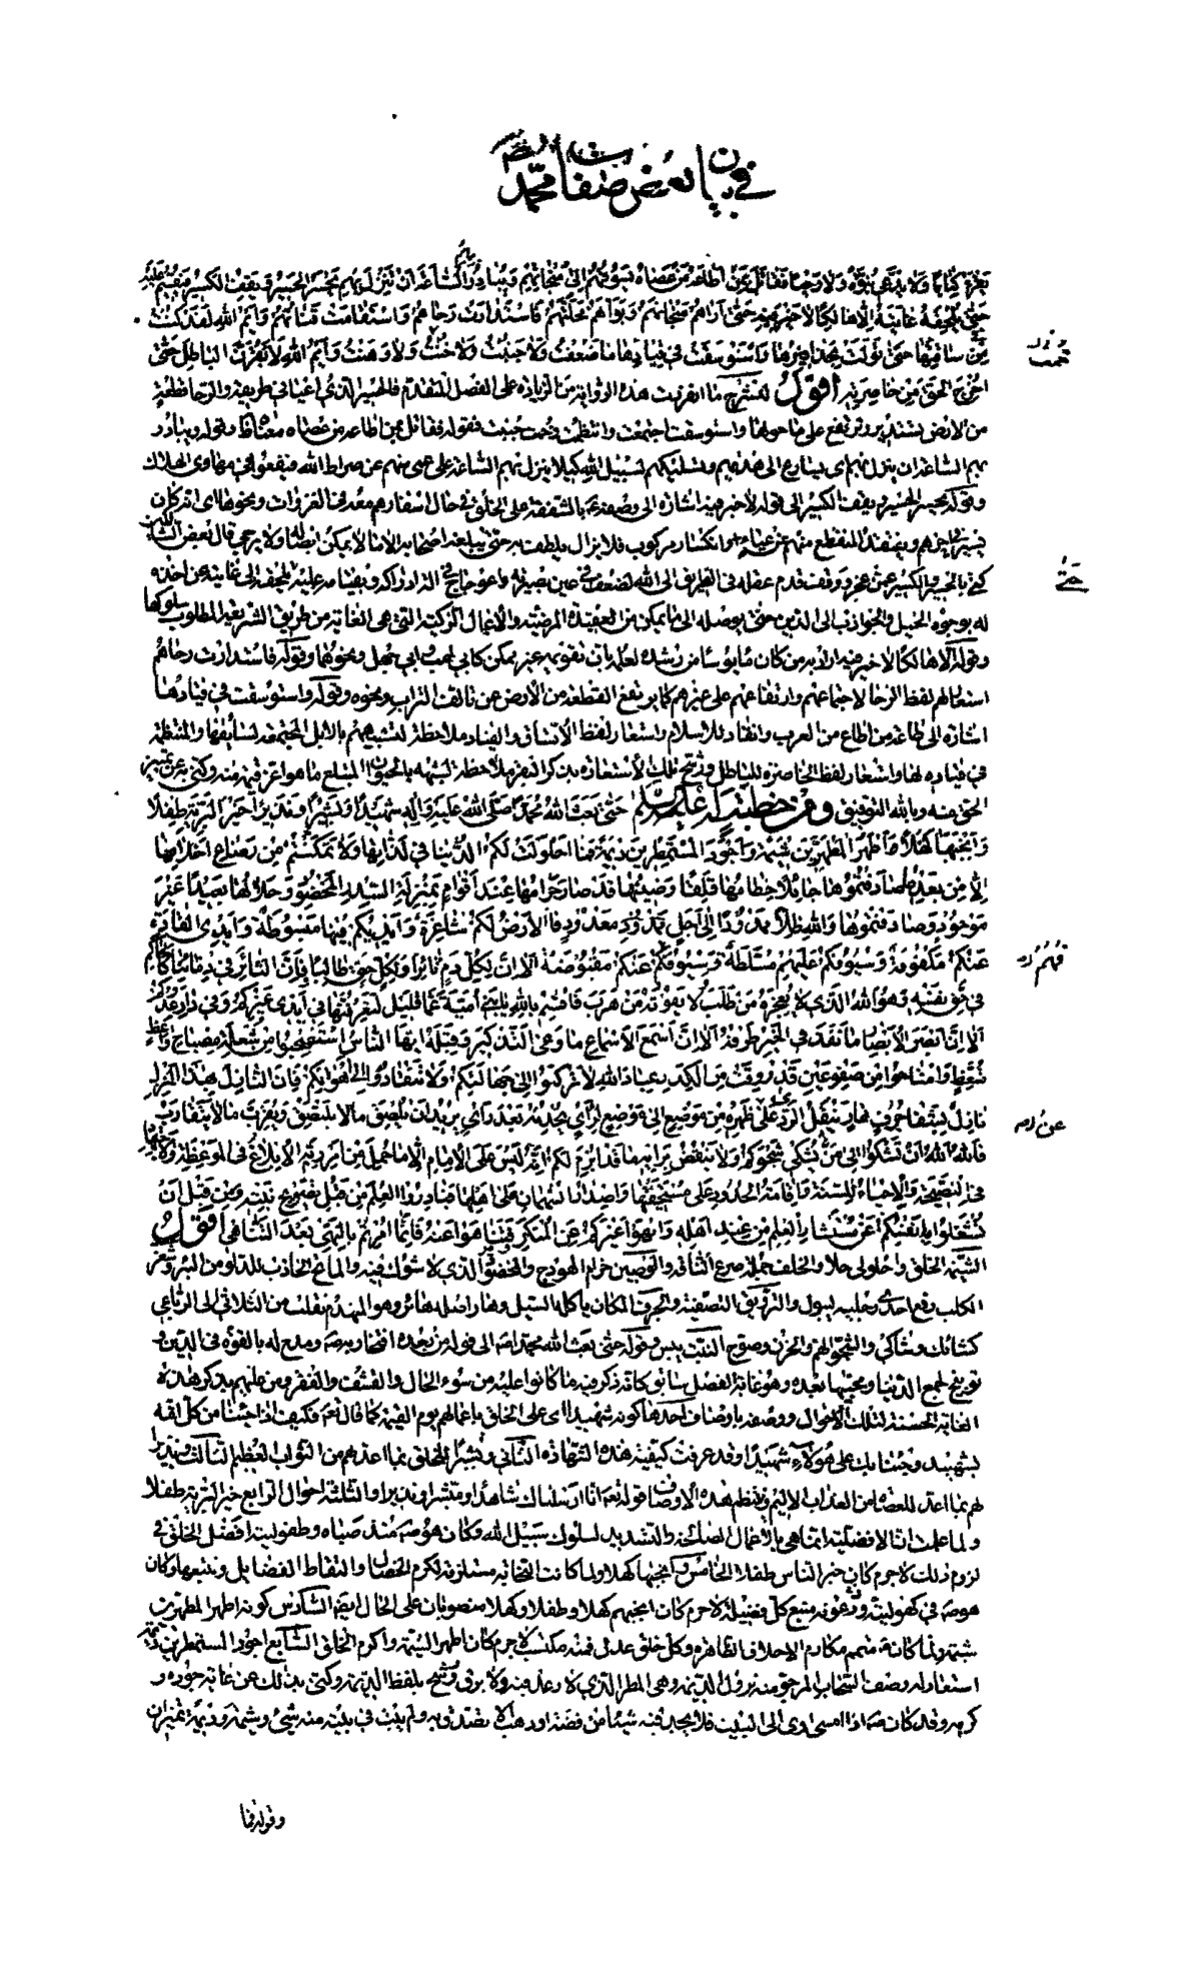 في بيان بعض صفات محمد ص
يقرء كتابا ولا يدعي نبوة ولا وحيا فقاتل بمن اطاعه من عصاه يسوقهم الى منجاتهم ويبادر بهم الساعة ان تنزل بهم يحسر الحسير ويقف الكسير فيقيم عليه
حتى يلحقه غايته الا هالكا لا خير فيه حتى اراهم منجاتهم وبوأهم محلتهم فاستدارت رحاهم واستقامت قناتهم وايم الله لقد كنت
من ساقتها حتى تولت بحذافيرها واستوسقت في قيادها ما ضعفت ولا جبنت ولا خنت ولا وهنت وايم الله لابقرن الباطل حتى
اخرج الحق من خاصرته اقول لنشرح ما انفردت هذه الرواية من الزيادة على الفصل المتقدم فالحسير الذي اعيا في طريقه والرحا قطعة
من الارض تستدير وترتفع على ما حولها واستوسقت اجتمعت وانتظمت وخمت جبنت فقوله فقاتل بمن اطاعه من عصاه وقوله ويبادر
بهم الساعة ان ينزل بهم اي يسارع الى هديهم وتسليكهم لسبيل الله كيلا ينزل بهم الساعة على عمى منهم عن صراط الله فيقعوا في مهاوي الهلاك
وقوله يحسر الحسير ويقف الكسير الى قوله لا خير فيه اشارة الى وصفه ع بالشفقة على الخلق في حال اسفارهم معه في الغزوات ونحوها اي انه كان
يسير في اخرهم ويفتقد المنقطع منهم عن عياء وانكسار مركوب فلا يزال يلطف به حتى يبلغه اصحابه الا ما لا يمكن ايصاله ولا يرجى قال بعض السالكين
كنى بالحسير والكسير عمن عجز ووقف قدم عقله في الطريق الى الله لضعف في عين بصيرته واعوجاج في الة ادراكه وبقيامه عليه حتى يلحقه الى غايته عن اخذه
له بوجوه الحيل والجواذب الى الدين حتى يوصله الى ما يمكن من العقيدة المرضية والاعمال الزكية التي هي الغاية من طريق الشريعة المطلوب سلوكها
وقوله الا هالكا لا خير فيه اراد به من كان مأيوسا من رشده لعلمه بان تقويمه غير ممكن كابي لهب وابي جهل ونحوهما وقوله فاستدارت رحاهم
استعار لهم لفظ الرحا لاجتماعهم وارتفاعهم على غيرهم كما يرتفع القطعة من الارض عن تالف التراب ونحوه وقوله واستوسقت في قيادها
اشارة الى طاعة من اطاع من العرب وانقاد للاسلام واستعار لفظ الاتساق والقياد ملاحظة لتشبيههم بالابل المجتمعة لسائقها والمنتظمة
في قياده لها واستعار لفظ الخاصرة للباطل ورشح تلك الاستعارة بذكر البقر ملاحظة لشبهه بالحيوان المبتلع ما هو اعز قيمة منه وكنى به عن تمييز
الحق منه وبالله التوفيق ومن خطبة له عليه السلم حتى بعث الله محمدا صلى الله عليه واله شهيدا وبشيرا ونذيرا خير البرية طفلا
وانجبها كهلا واطهر المطهرين شيمة واجود المستمطرين ديمة فما احلولت لكم الدنيا في لذاتها ولا تمكنتم من رضاع اخلافها
الا من بعد ما صادفتموها جائلا خطامها قلقا وضينها قد صار حرامها عند اقوام بمنزلة السدر المخضود وحلالها بعيدا غير
موجود وصادفتموها والله ظلا ممدودا الى اجل معدود فالارض لكم شاغرة وايديكم فيها مبسوطة وايدي القادة
عنكم مكفوفة وسيوفكم عليهم مسلطة وسيوفهم عنكم مقبوضة الا ان لكل دم ثائرا ولكل حق طالبا وان الثائر في دمائنا كالحاكم
في حق نفسه وهو الله الذي لا يعجزه من طلب ولا يفوته من هرب فاقسم بالله يا بني امية عما قليل لتعرفنها في ايدي غيركم وفي دار عدوكم
الا ان ابصر الابصار ما نفذ في الخير طرفه الا ان اسمع الاسماع ما وعى التذكير وقبله ايها الناس استصبحوا من شعلة مصباح واعظ
متعظ وامتاحوا من صفو عين قد روقت من الكدر عباد الله لا تركنوا الى جهالتكم ولا تنقادوا الى اهوائكم فان النازل بهذا المنزل
نازل بشفا جرف هار ينقل الردى على ظهره من موضع الى موضع لرأي يحدثه بعد رأي يريد ان يلصق ما لا يلتصق ويقرب ما لا يتقارب
فالله الله ان تشكوا الى من لا يشكي شجوكم ولا ينقض برأيه ما قد ابرم لكم انه ليس على الامام الا ما حمل من امر ربه الابلاغ في الموعظة والاجتهاد
في النصيحة والاحياء للسنة واقامة الحدود على مستحقيها واصدار السهمان على اهلها فبادروا العلم من قبل تصويح نبته ومن قبل ان
تشغلوا بانفسكم عن مستثار العلم من عند اهله وانهوا غيركم عن المنكر وتناهوا عنه فانما امرتم بالنهي بعد التناهي اقول
الشيمة الخلق واحلولى حلا والخلف حلمة ضرع الناقة والوضين حزام الهودج والمخضود الذي لا شوك فيه والماتح الجاذب للدلو من البئر وشغر
الكلب رفع احدى رجليه ليبول والترويق التصفية والجرف المكان يأكله السيل وهار اصله هائر وهو المنهدم نقلت من الثلاثي الى الرباعي
كشائك وشاكي والشجو الهم والحزن وصوح النبت يبس وقوله حتى بعث الله محمدا ص الى قوله من بعده افتخار به ص ومدح له بالقوة في الدين و
توبيخ لجمع الدنيا ومحبيها بعده وهو غاية لفصل سابق كانه ذكر فيه ما كانوا عليه من سوء الحال والقشف والفقر ومن عليهم بذكر هذه
الغاية الحسنة لتلك الاحوال ووصفه باوصاف احدها كونه شهيدا اي على الخلق باعمالهم يوم القيمة كما قال تعم فكيف اذا جئنا من كل امة
بشهيد وجئنا بك على هؤلاء شهيدا وقد عرفت كيفية هذه الشهادة الثاني وبشيرا للخلق بما اعد لهم من الثواب العظيم الثالث ونذيرا
لهم بما اعد للعصاة من العذاب الاليم وينتظم هذه الاوصاف قوله تعم انا ارسلناك شاهدا ومبشرا ونذيرا والثلثة احوال الرابع خير البرية طفلا
ولما علمت ان الافضلية انما هي بالاعمال الصالحة والتسديد لسلوك سبيل الله وكان هو ص منذ صباه وطفوليته افضل الخلق في
لزوم ذلك لا جرم كان خير الناس طفلا الخامس وانجبها كهلا ولما كانت النجابة مستلزمة لكرم الخصال والتقاط الفضايل وتتبعها وكان
هو ص في كهوليته ودعوته منبع كل فضيلة لا جرم كان انجبهم كهلا وطفلا وكهلا منصوبان على الحال ايضا السادس كونه اطهر المطهرين
شيمة ولما كان ص متمم مكارم الاخلاق الظاهرة وكل خلق عدل فمنه مكتسب لا جرم كان اطهر الشيمة واكرم الخلق السابع اجود المستمطرين ديمة
استعار له وصف السحاب المرجو منه نزول الديمة وهي المطر الذي لا رعد فيه ولا برق ورشح بلفظ الديمة وكنى بذلك عن غاية جوده و
كرمه وقد كان ص اذا امسى اوى الى البيت فلا يجد فيه شيئا من فضة او ذهب الا تصدق به ولم يبت في بيته منه شيئ وشيمة وديمة تميزان
وقوله فما